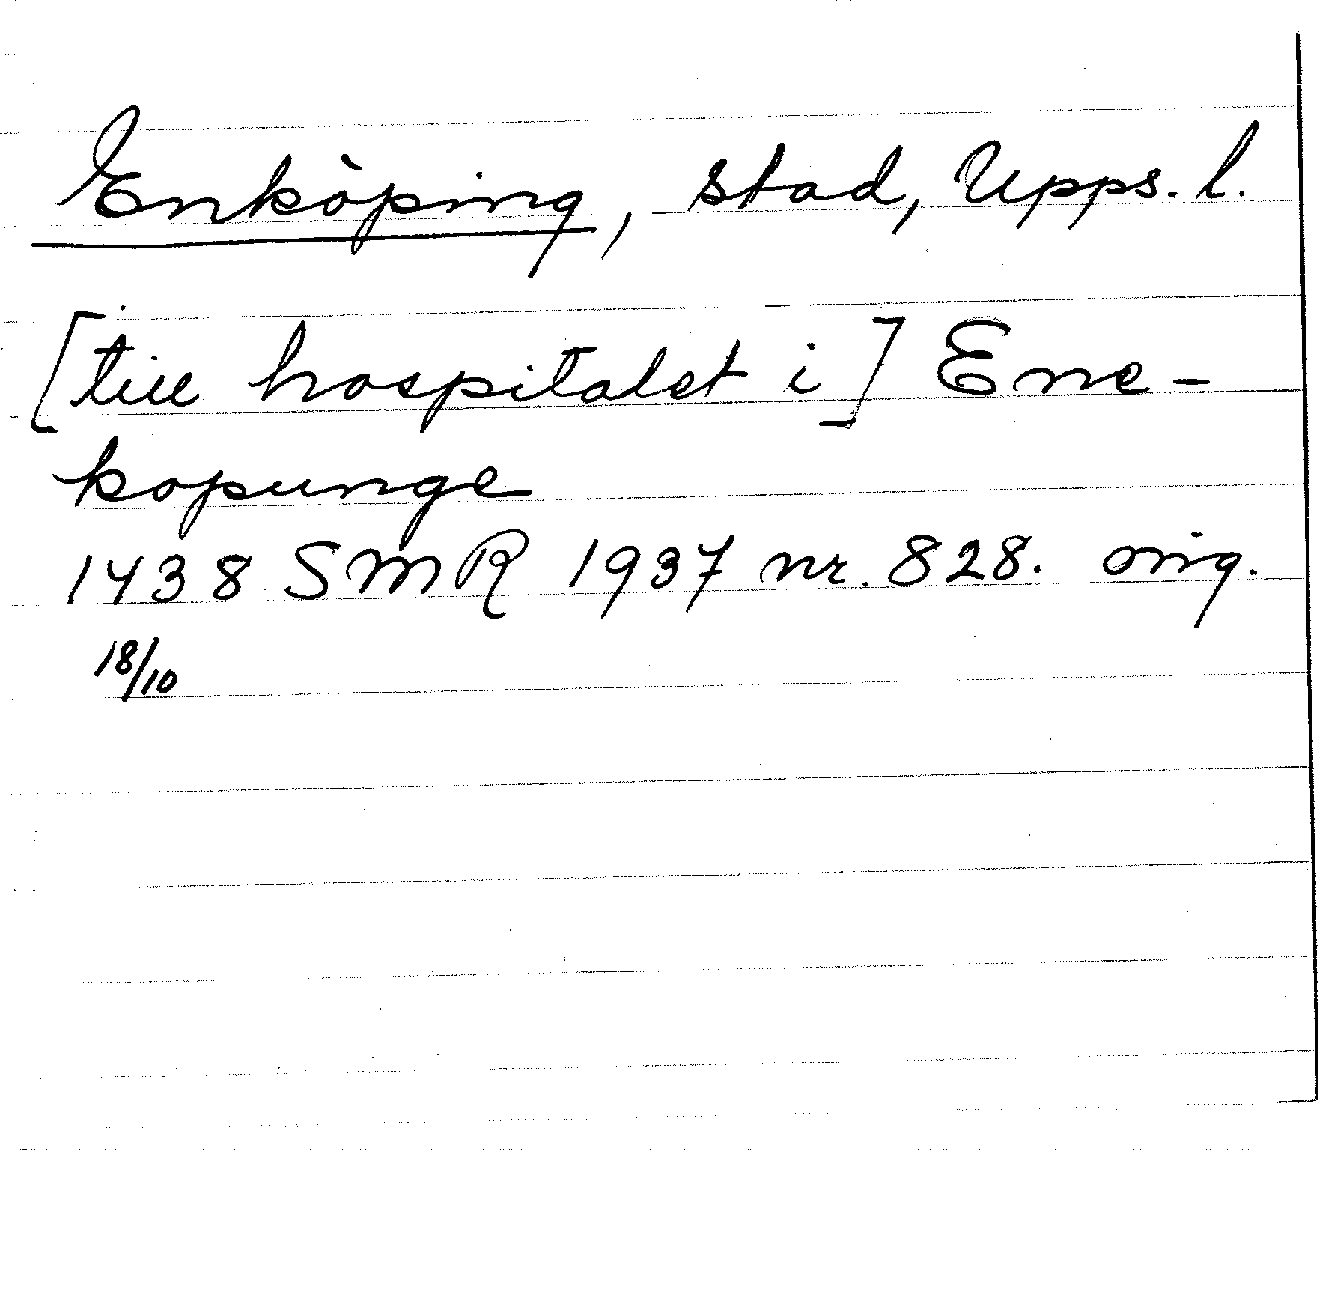 Enköping, stad, Upps. l.
[till hospitalet i] Ene-
kopunge
1438 SMR 1937 nr. 828. orig.
18/10